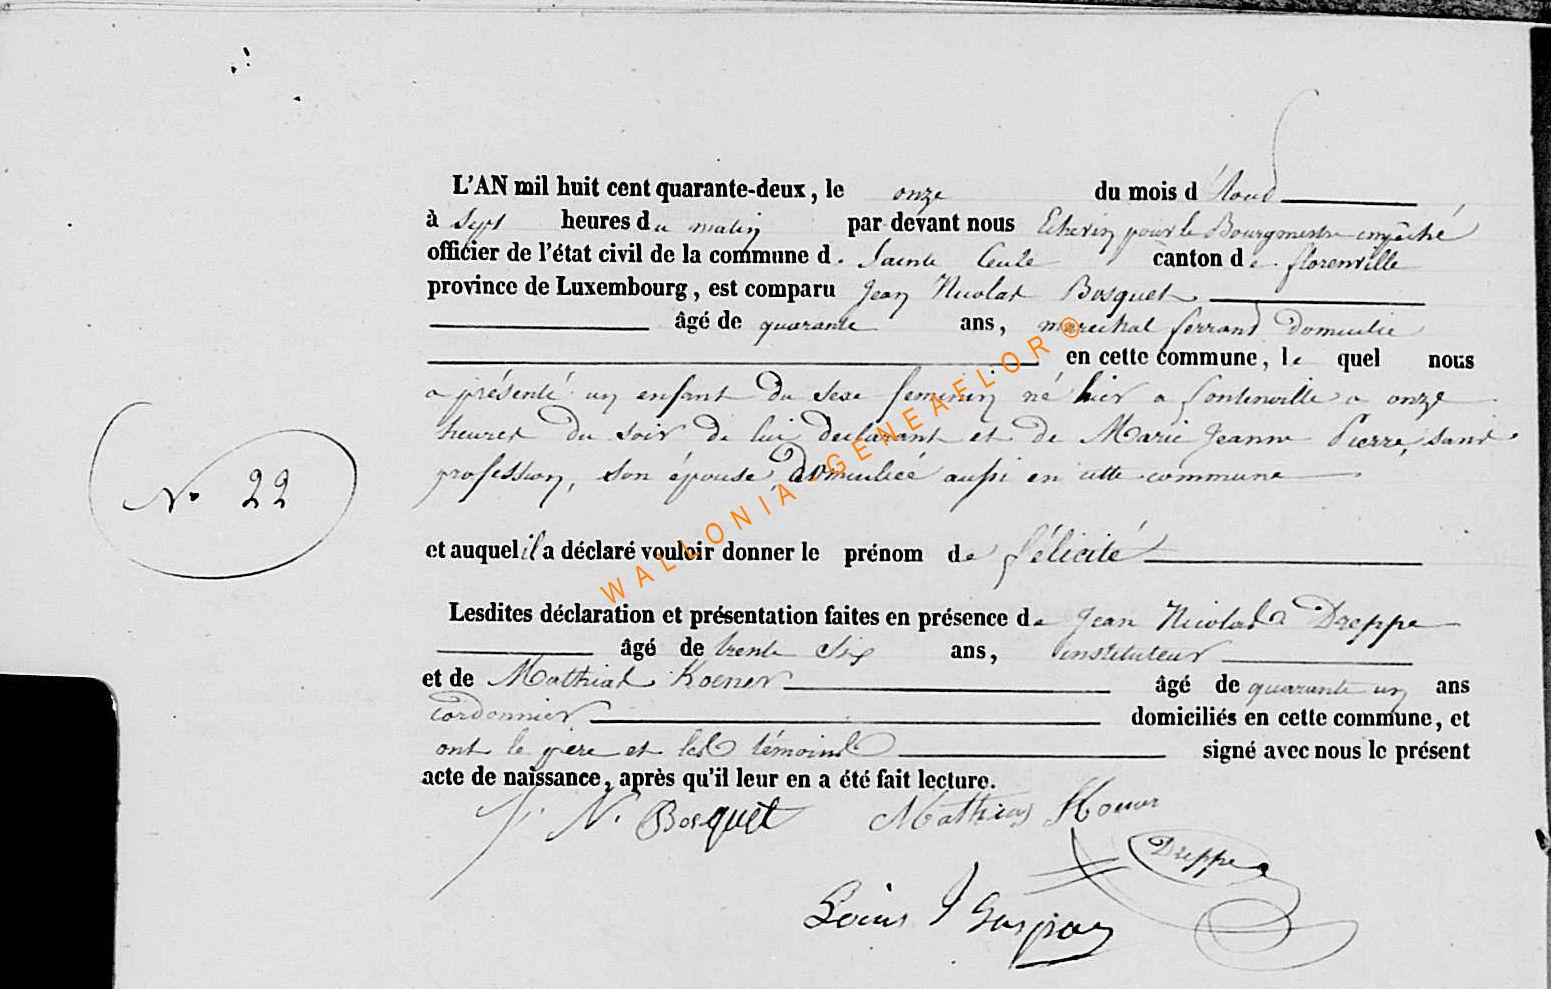 L'AN mil huit cent quarante-deux, le onze du mois d'Aoud
à Sept heures du matin par devant nous Echevin pour le Bourgmestre empêché,
officier de l'état civil de la commune de Sainte Cecile canton de florenville
province de Luxembourg, est comparu Jean Nicolas Bosquet
âgé de quarante ans, marechal ferrand Domicilié
en cette commune, le quel nous
a présenté un enfant du sexe feminin né hier a fontenoille a onze
heures du soir de lui declarant et de Marie Jeanne Pierre, sans
profession, son épouse, domiciliée aussi en cette commune
No 22
et auquel il a déclaré vouloir donner le prénom de félicité
Lesdites déclaration et présentation faites en présence de Jean Nicolas Dreppe
âgé de trente Six ans, instituteur
et de Mathias Koener âgé de quarante un ans
cordonnier domiciliés en cette commune, et
ont le père et les témoins signé avec nous le présent
acte de naissance, après qu'il leur en a été fait lecture.
J. N. Bosquet Mathias Koener
Dreppe
Louis J Gaspar
WALLONIA GENEAFLOR®